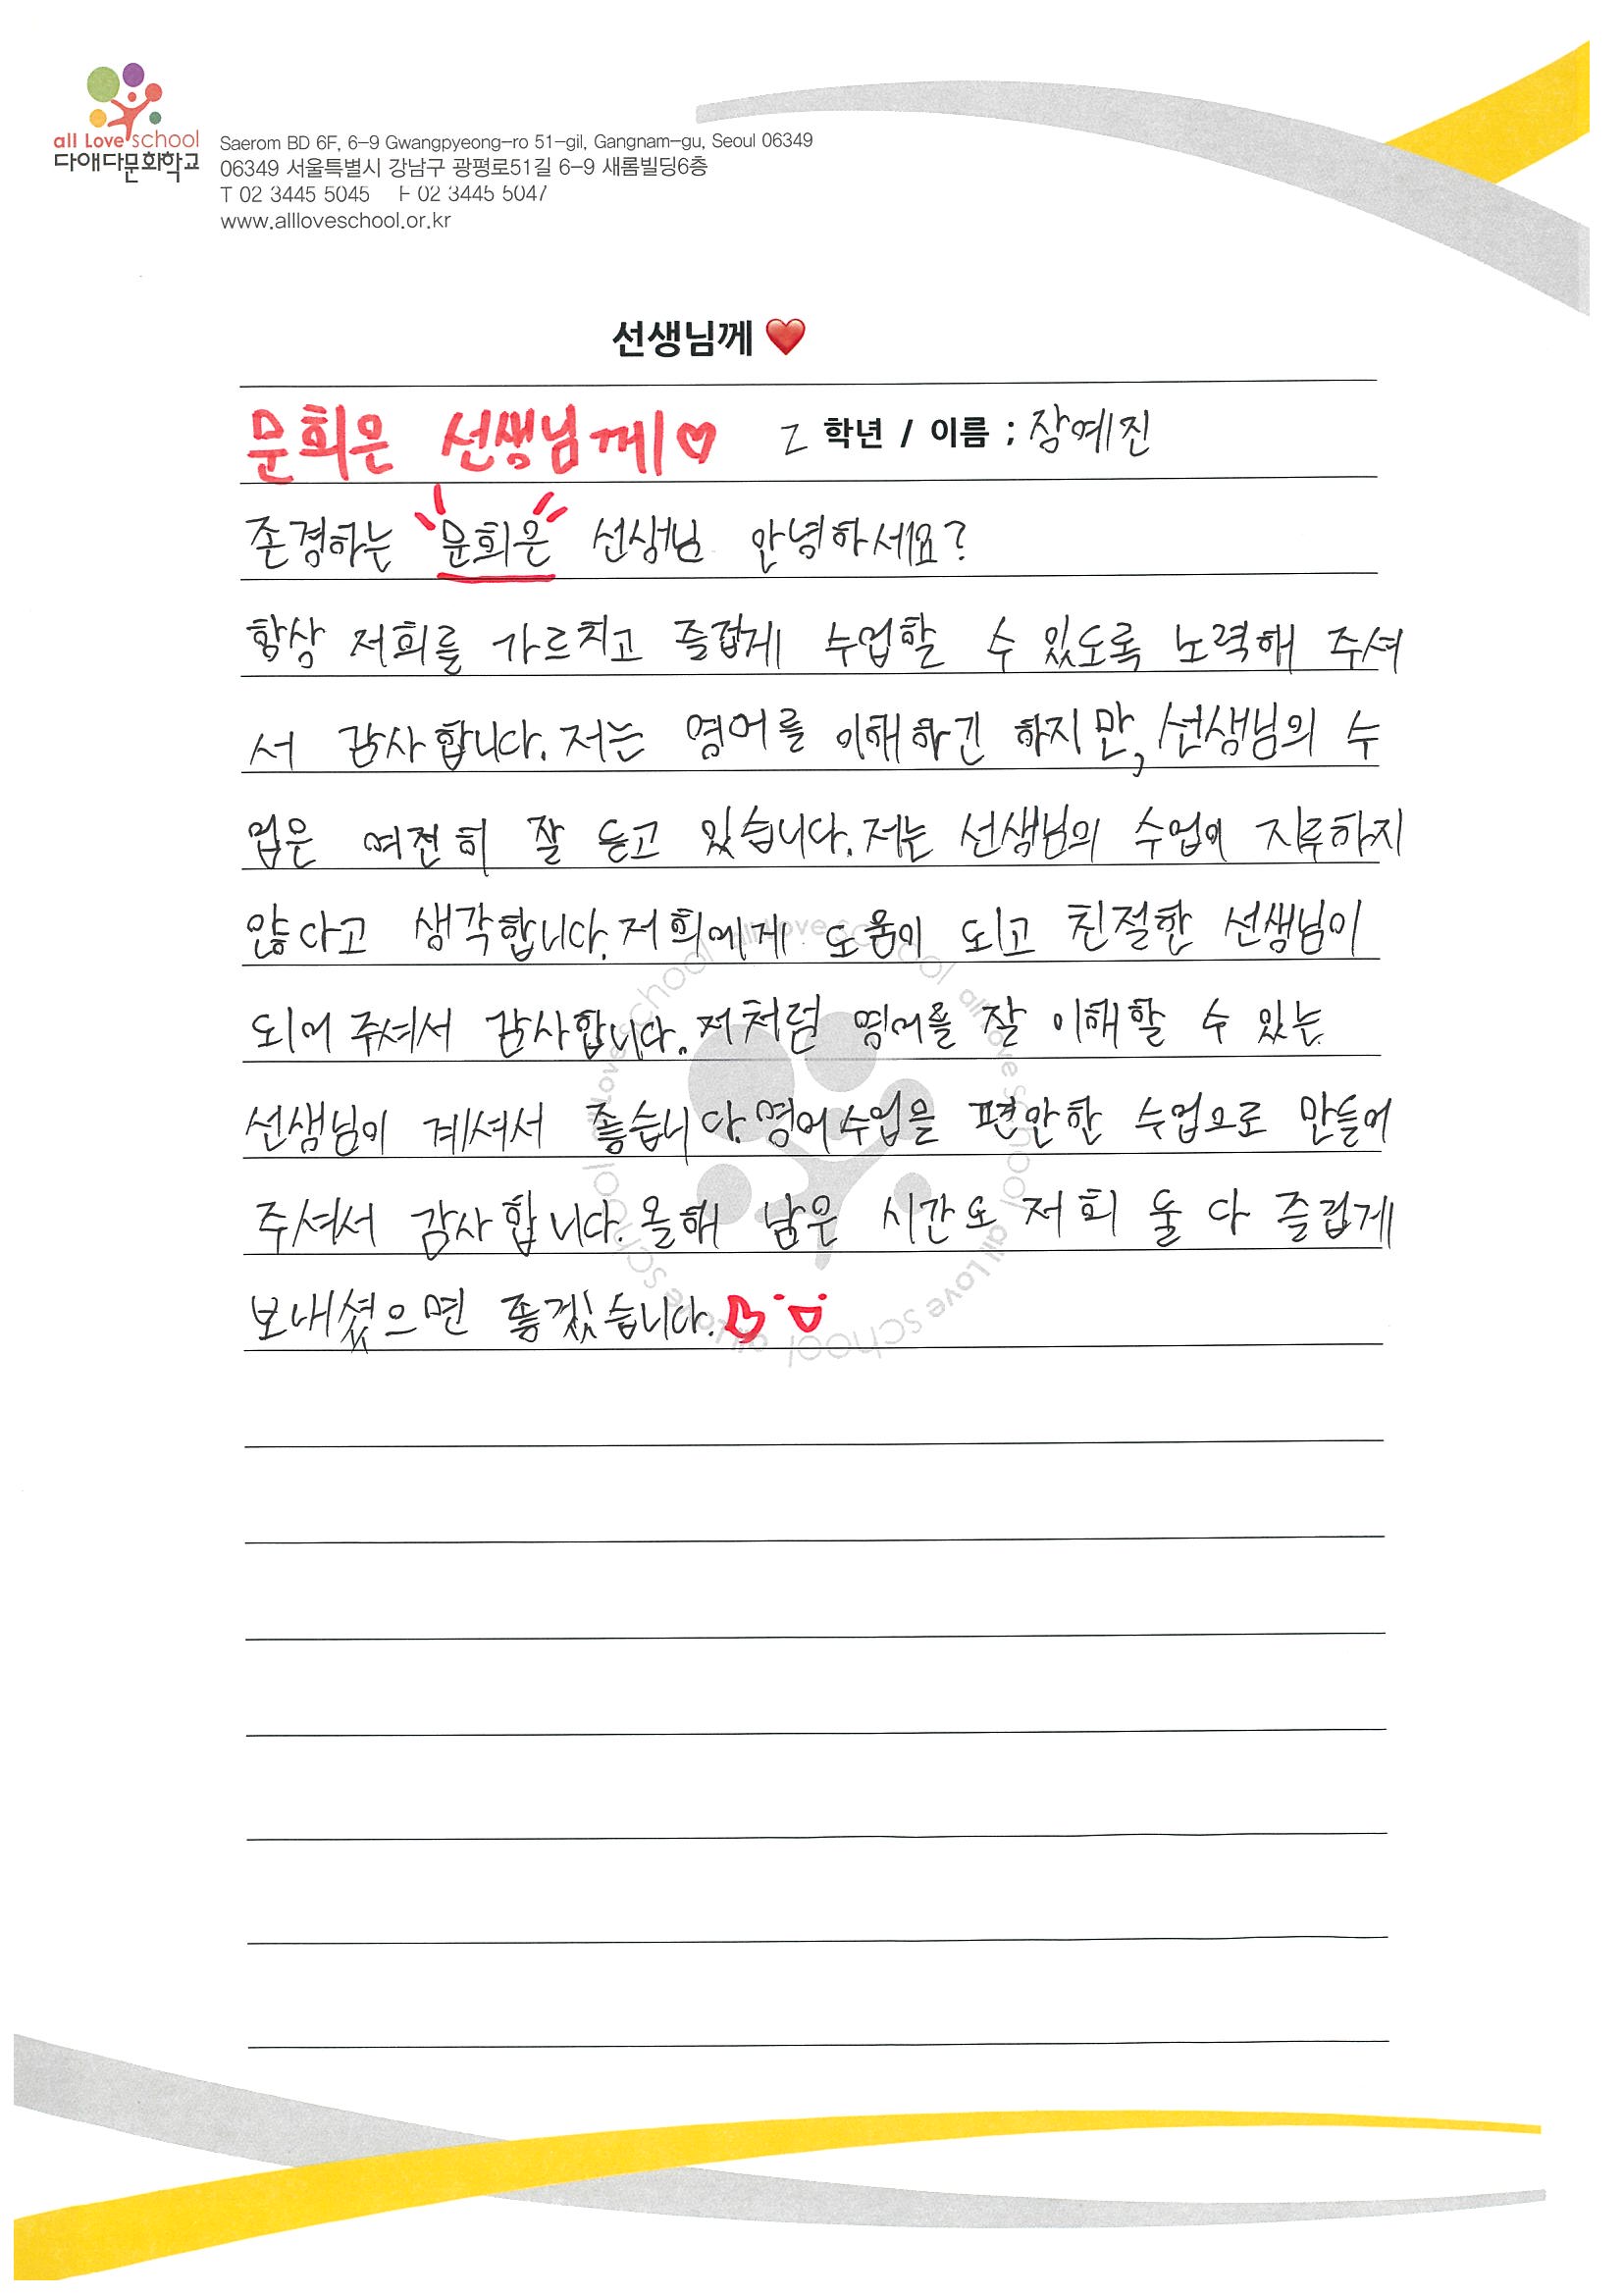 all Love school
다애다문화학교
Saerom BD 6F, 6-9 Gwangpyeong-ro 51-gil, Gangnam-gu, Seoul 06349
06349 서울특별시 강남구 광평로51길 6-9 새롬빌딩6층
T 02 3445 5045 F 02 3445 5047
www.allloveschool.or.kr
선생님께 ❤️
문희은 선생님께♡ 2 학년 / 이름 ; 장예진
존경하는 문희은 선생님 안녕하세요?
항상 저희를 가르치고 즐겁게 수업할 수 있도록 노력해 주셔
서 감사합니다. 저는 영어를 이해하긴 하지만, 선생님의 수
업은 여전히 잘 듣고 있습니다. 저는 선생님의 수업이 지루하지
않다고 생각합니다. 저희에게 도움이 되고 친절한 선생님이
되어 주셔서 감사합니다. 저처럼 영어를 잘 이해할 수 있는
선생님이 계셔서 좋습니다. 영어수업을 편안한 수업으로 만들어
주셔서 감사합니다. 올해 남은 시간도 저희 둘 다 즐겁게
보내셨으면 좋겠습니다.
all Love school all Love school all Love school all Love school